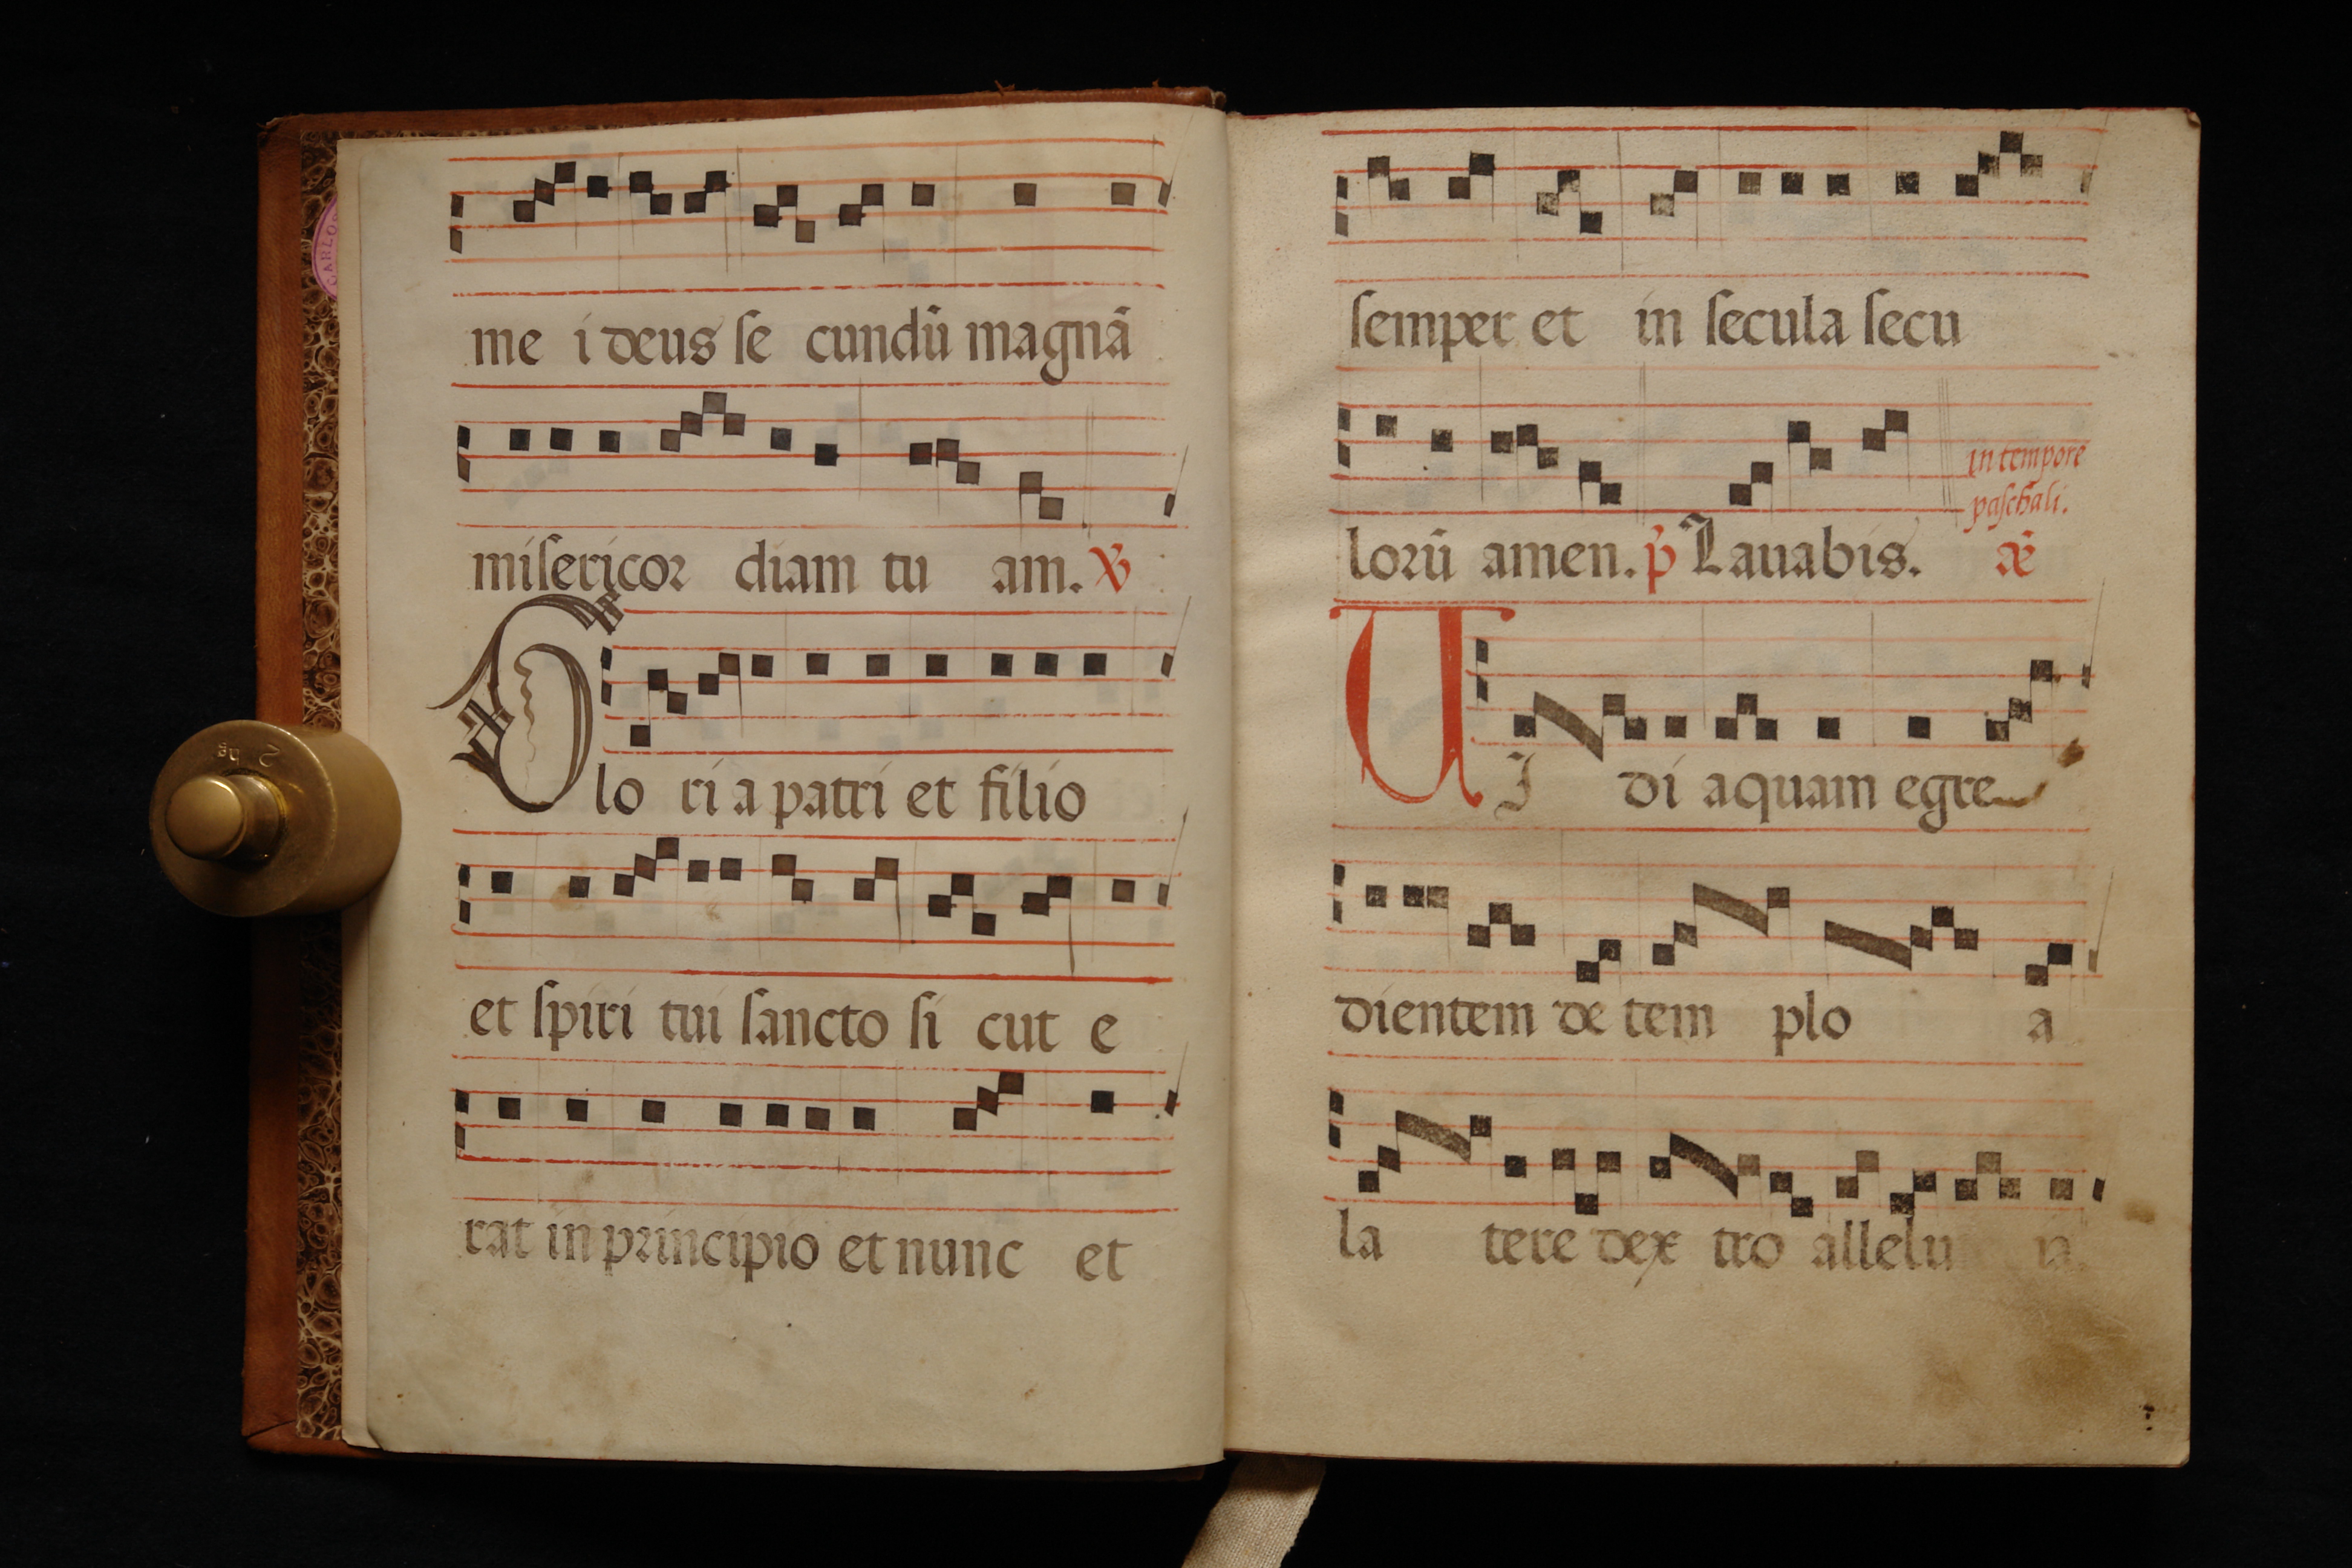 me i deus se cundū magnā
misericor diam tu am. ℣
Glo ri a patri et filio
et spiri tui sancto si cut e
rat in principio et nunc et
semper et in secula secu
in tempore
paschali.
lorū amen. p̄ Lauabis. añ
UI di aquam egre
dientem de tem plo a
la tere dex tro allelu ia.
CARLO
2 kg